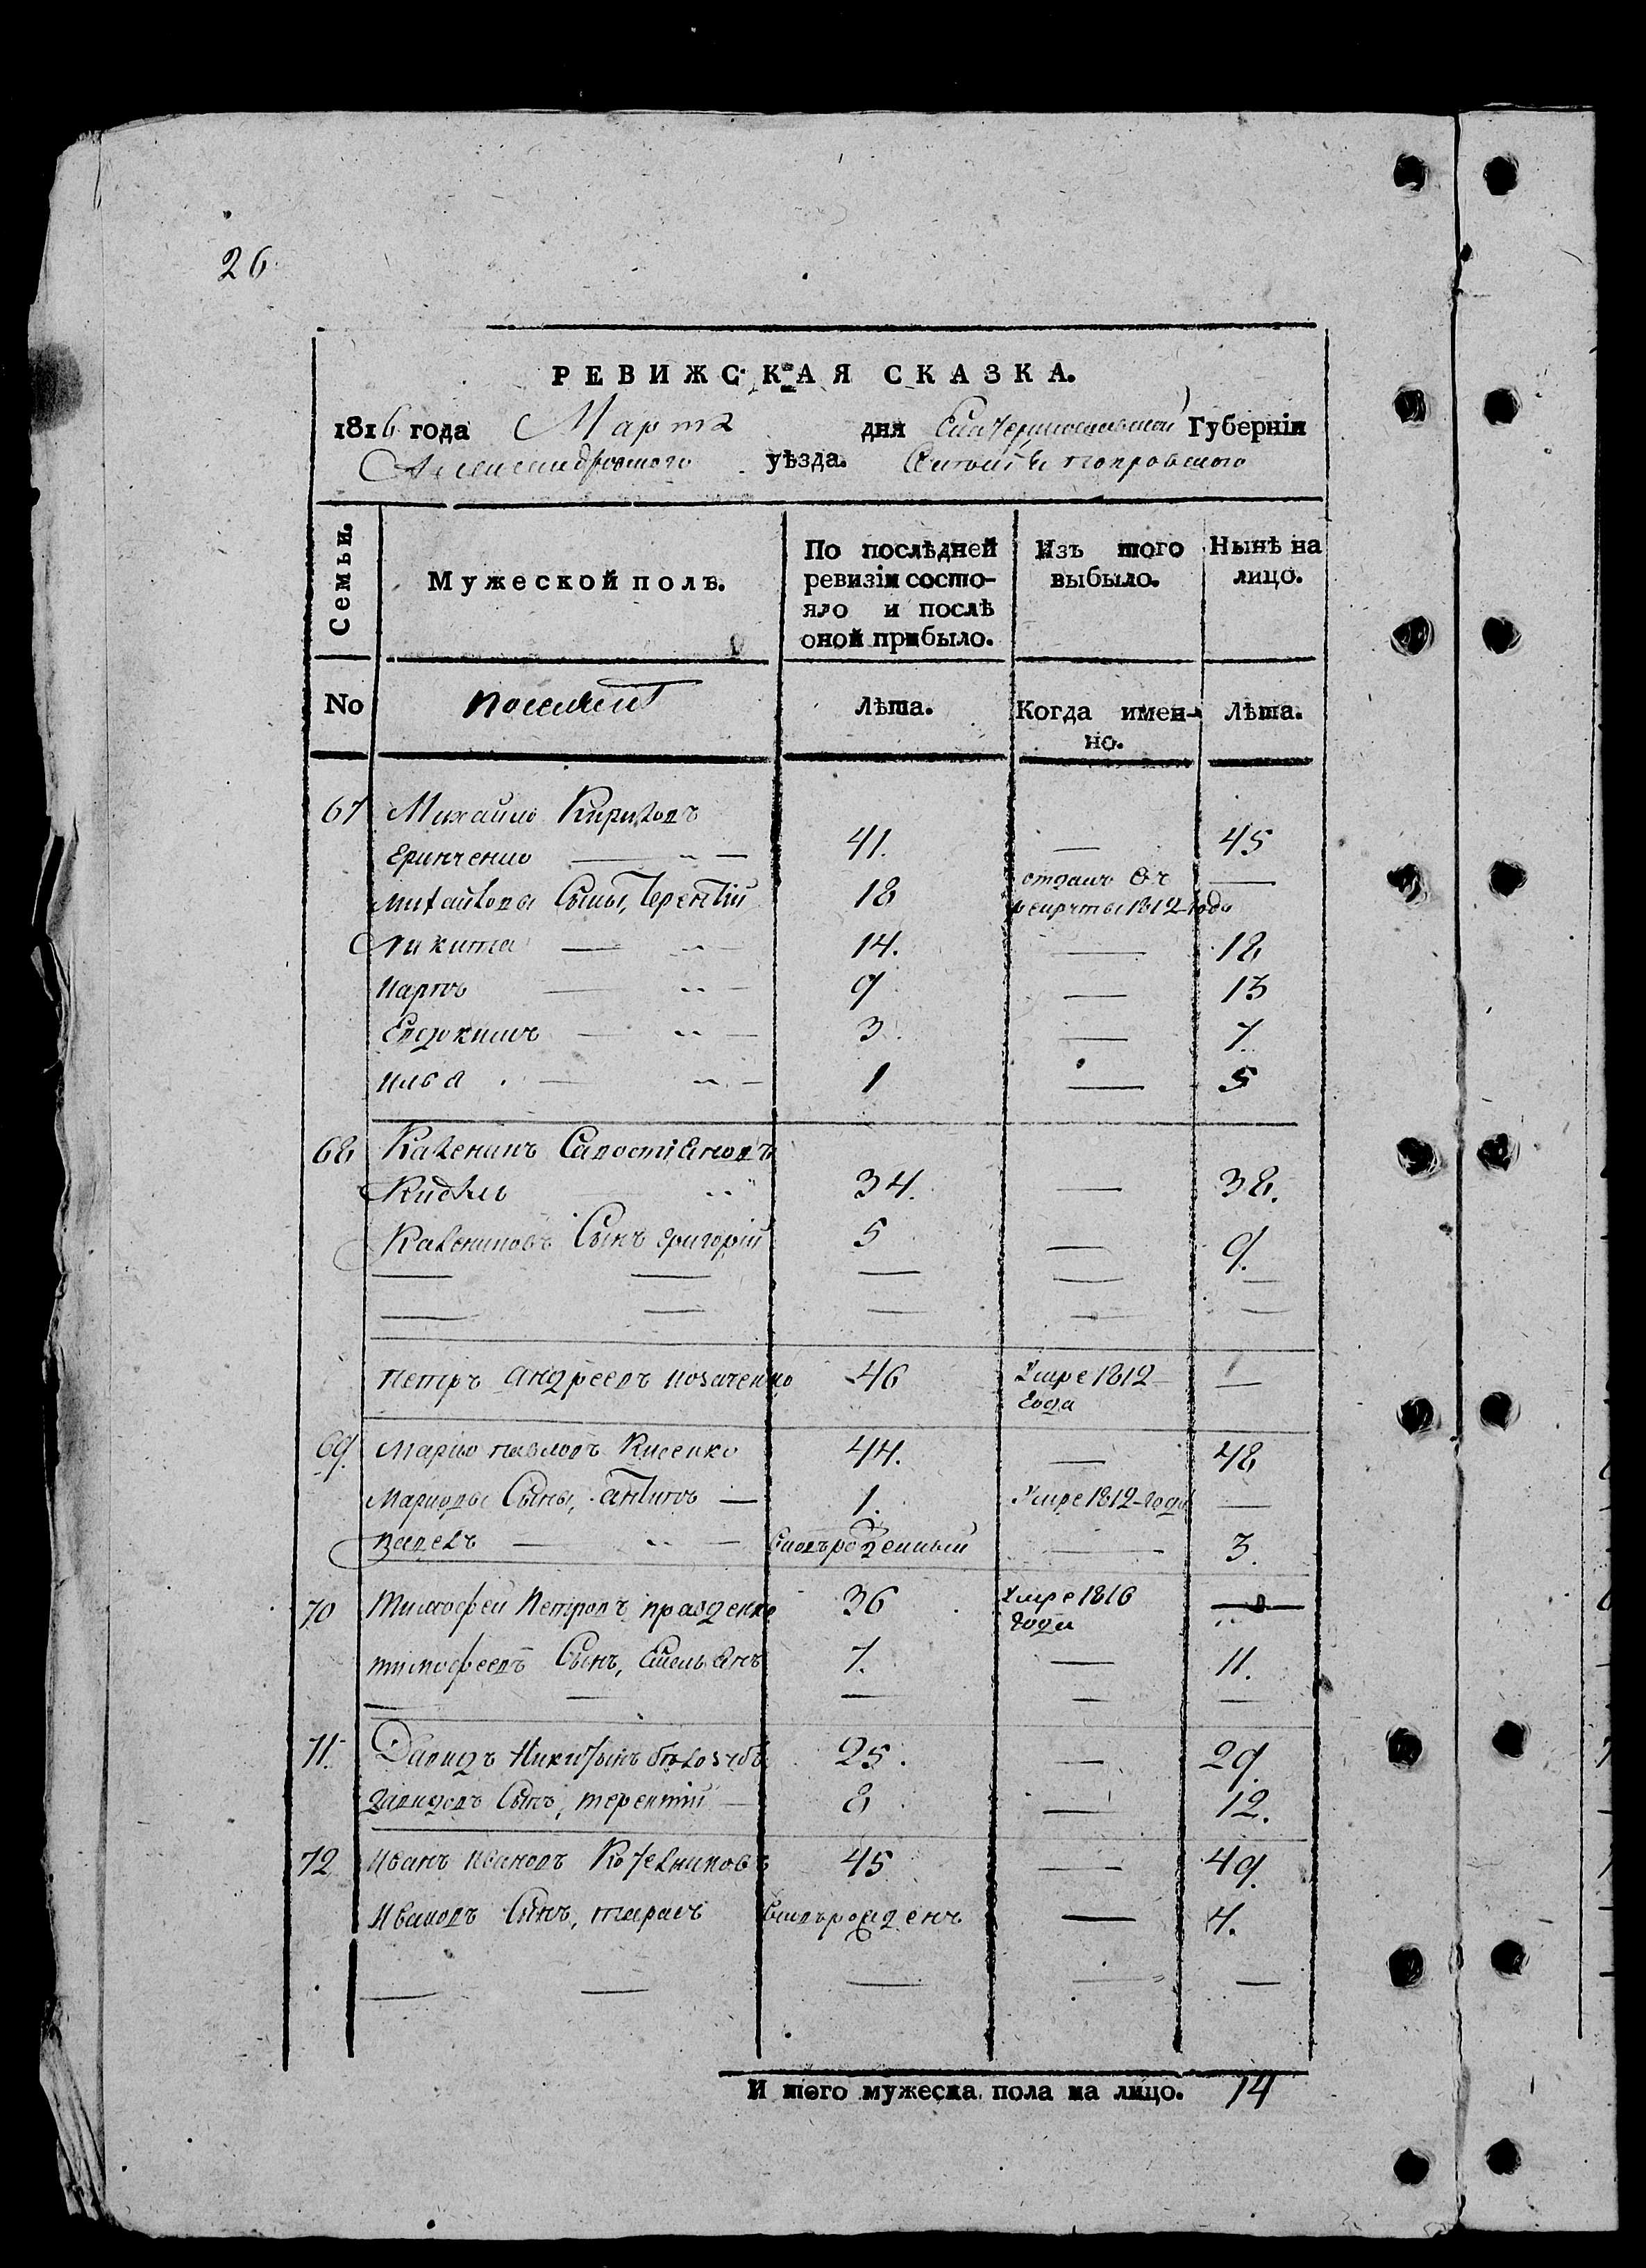 26
РЕВИЖСКАЯ СКАЗКА.
1816 года Марта дня Екатеринославской Губернiи
Александровского уѣзда. Покровского
Семьи. Мужеской полъ. По послѣдней ревизiи состояло и послѣ оной прибыло. Изъ того выбыло. Нынѣ на лицо.
No Лѣта. Когда именно. Лѣта.
67 Михайло Кириловъ
41. — 45
Михайловы Сыны, Терентiй 18 отданъ въ рекруты 1812 года —
Никита — 14. — 18
Карпъ — 9 — 13
Евдокимъ — 3 — 7
Илья — 1 — 5
68 Каленикъ Савостiяновъ
34. — 38.
Калениковъ Сынъ Григорiй 5 — 9.
— — — — —
— — — — —
Петръ Андреевъ Козаченко 46 Умре 1812 года —
69 Марко Павловъ Кисенко 44. — 48
Марковы Сыны, Антипъ — 1. Умре 1812 года —
Павелъ — новорожденный — 3.
70 Тимофей Петровъ Празденко 36 Умре 1816 года —
Тимофеевъ Сынъ, Емельянъ 7. — 11.
— — — — —
71. Давидъ Никитинъ Бѣлозубъ 25. — 29.
Давидовъ Сынъ, Терентiй — 8 — 12.
72 Иванъ Ивановъ Котелниковъ 45 — 49.
Ивановъ Сынъ, Тарасъ новорожденъ — 4.
— — — — —
И того мужеска пола на лицо. 14